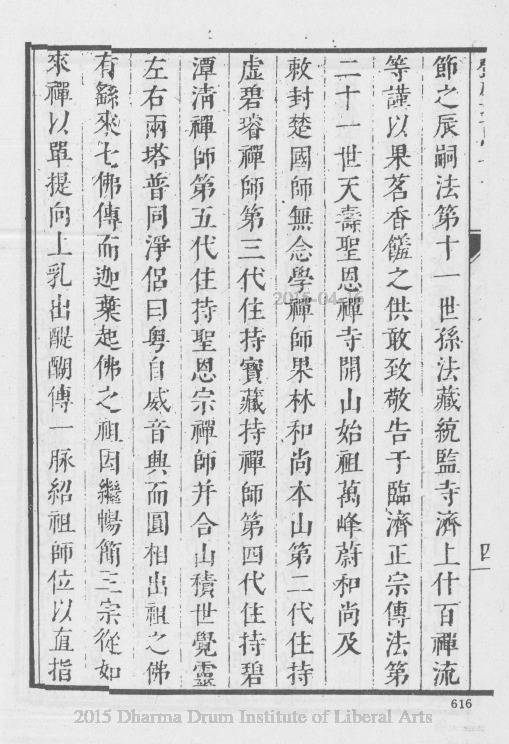 節之辰嗣法第十一世孫法藏統監寺濟上什百禪流
等謹以果茗香饈之供敢致敬告于臨濟正宗傳法第
二十一世天壽聖恩禪寺開山始祖萬峰蔚和尚及
敕封楚國師無念學禪師果林和尚本山第二代住持
虛碧璿禪師第三代住持寶藏持禪師第四代住持碧
潭清禪師第五代住持聖恩宗禪師并合山積世覺靈
左右兩塔普同淨侶曰粵自威音興而圓相出祖之佛
有繇來七佛傳而迦葉起佛之祖因繼暢簡三宗從如
來禪以單提向上乳出醍醐傳一脉紹祖師位以直指
四
616
2015 Dharma Drum Institute of Liberal Arts